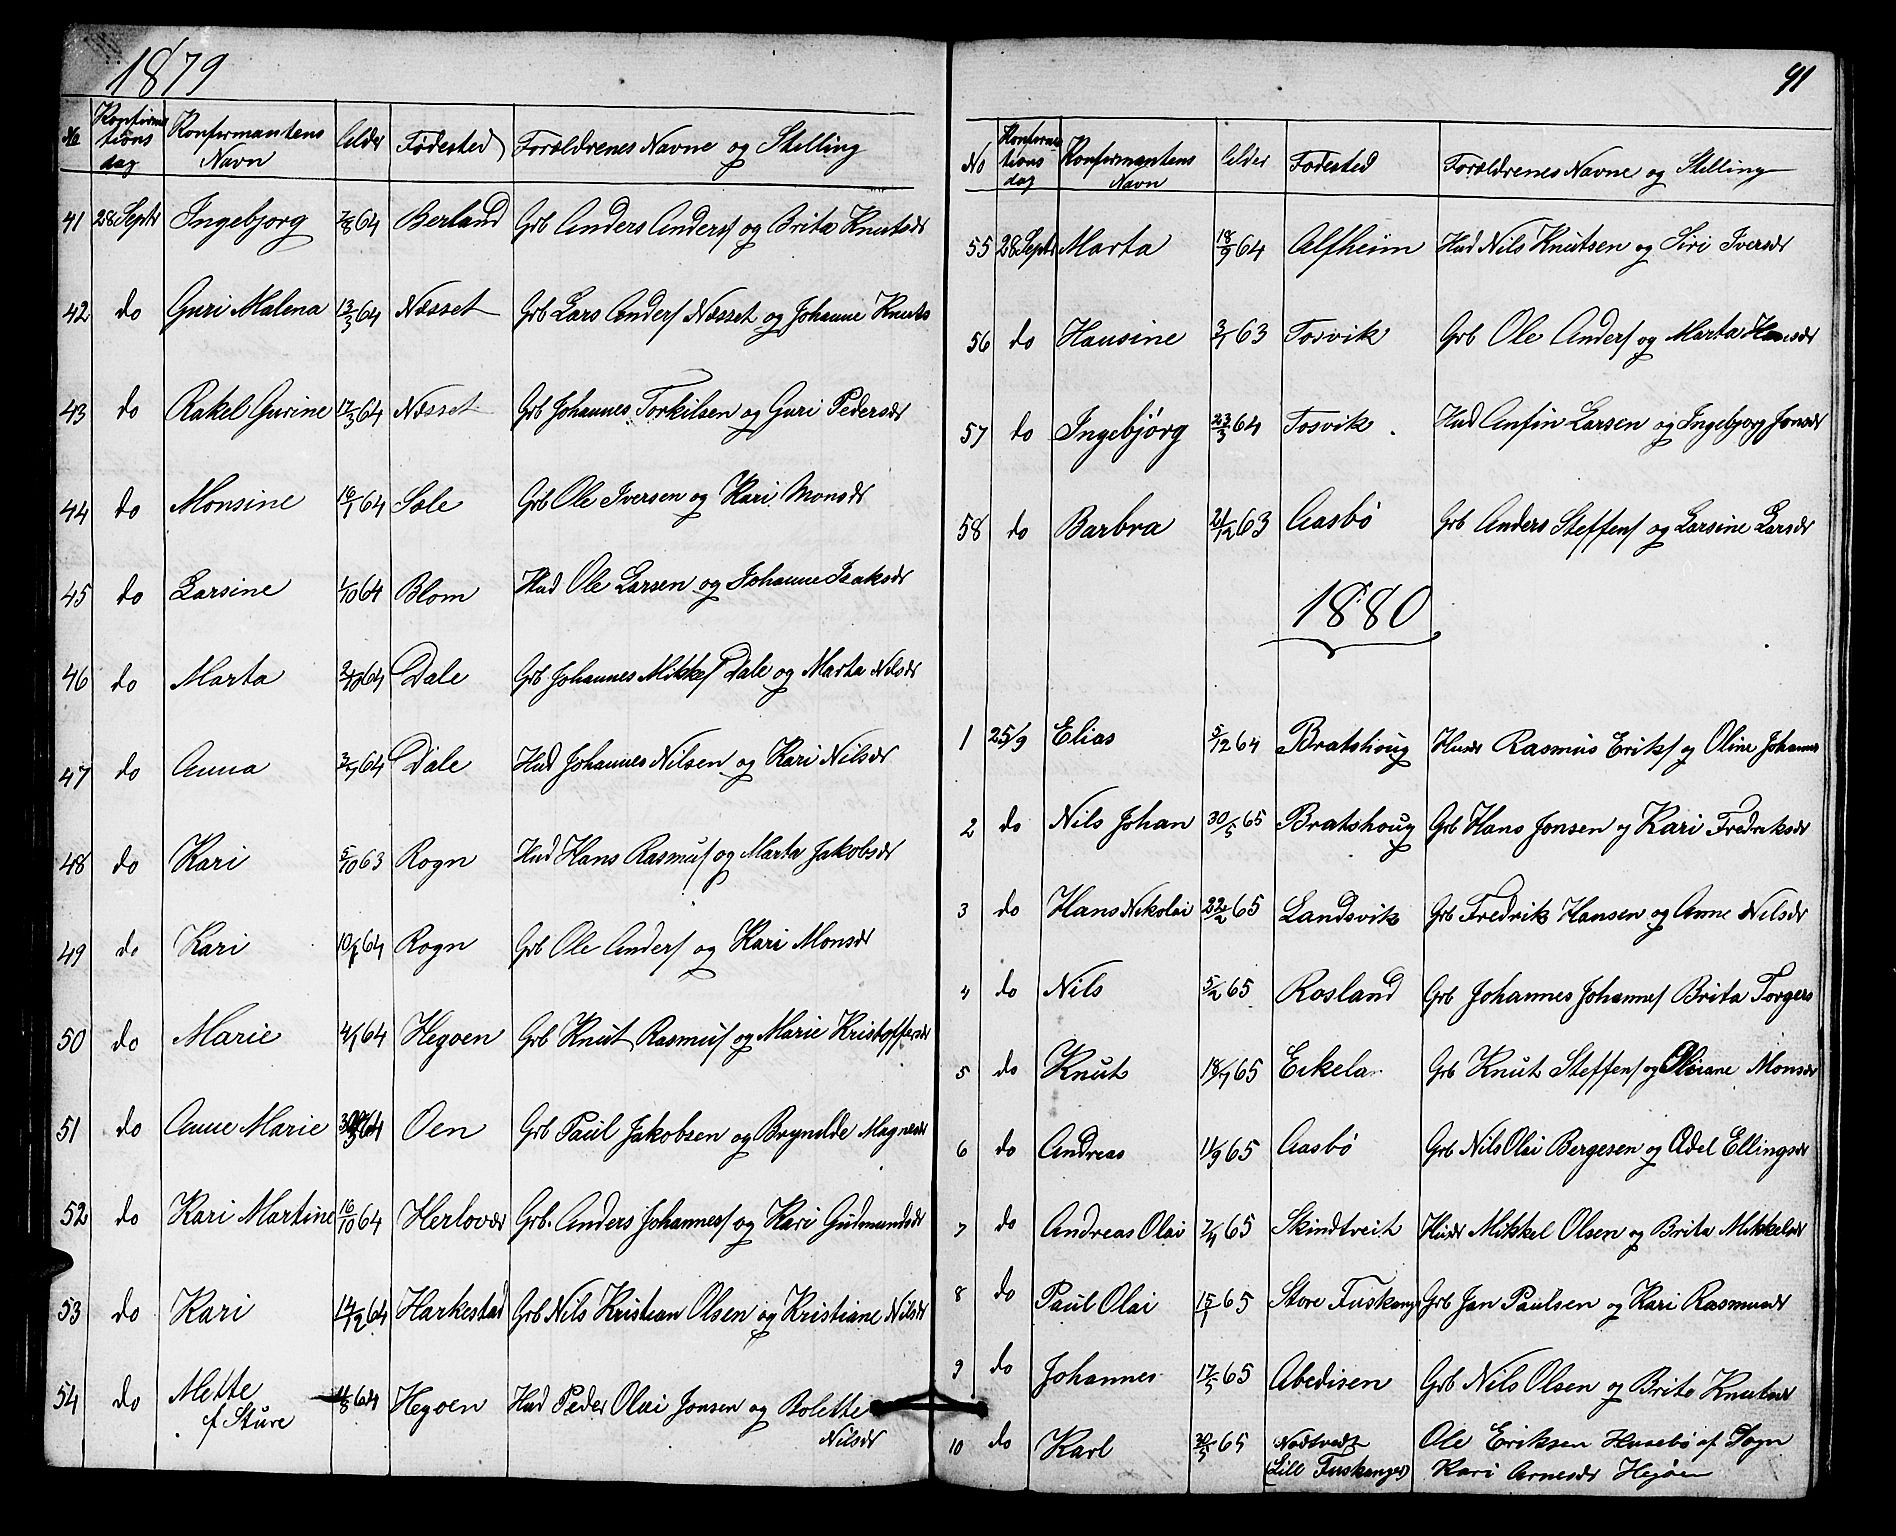 1879
No Konfirmationsdag Konfirmantens Navn Alder Fødested Forældrenes Navne og Stilling
41 28 Septr Ingebjorg 7/8 64 Berland Grb Anders Anders/ og Brita Knutsdr
42 do Guri Malena 13/3 64 Næsset Grb Lars Anders/ Næsset og Johanne Knuts
43 do Rakel Gurine 12/3 64 Næsset Grb Johannes Torkilsen og Guri Pedersdr
44 do Monsine 16/1 64 Sole Grb Ole Iversen og Kari Monsdr
45 do Larsine 1/10 64 Blom Hud Ole Larsen og Johanne Isaksdr
46 do Marta 2/10 64 Dale Grb Johannes Mikkel/ Dale og Marta Nilsdr
47 do Anna 64 Dale Hud Johannes Nilsen og Kari Nilsdr
48 do Kari 5/10 63 Rogn Hud Hans Rasmus/ og Marta Jakobsdr
49 do Kari 10/1 64 Rogn Grb Ole Anders/ og Kari Monsdr
50 do Marie 4/1 64 Hegoen Grb Knut Rasmus/ og Marie Kristoffersdr
51 do Anne Marie 64 Oen Grb Paul Jakobsen og Brynilde Magnesdr
52 do Kari Martine 16/10 64 Herlovær Grb. Anders Johannes/ og Kari Gudmundsdr
53 do Kari 14/2 64 Harkestad Grb Nils Kristian Olsen og Kristiane Nilsdr
54 do Mette 64 Hegoen Hud Peder Olai Jonsen og Bolette
f Sture Nilsdr
91
No Konfirmationsdag Konfirmantens Navn Alder Fodested Forældrenes Navne og Stilling
55 28 Septr Marta 18/9 64 Alfheim Hud Nils Knutsen og Siri Iversdr
56 do Hansine 3/1 63 Tosvik Grb Ole Anders/ og Marta Hansdr
57 do Ingebjørg 23/3 64 Tosvik Hud Anfin Larsen og Ingebjorg Jonsdr
58 do Barbra 21/12 63 Aasbø Grb Anders Steffens/ og Larsine Larsdr
1880
1 25/9 Elias 5/12 64 Bratshoug Husdr Rasmus Eriks/ og Oline Johannes
2 do Nils Johan 30/5 65 Bratshoug Grb Hans Jonsen og Kari Fredriksdr
3 do Hans Nikolai 22/2 65 Landsvik Grb Fredrik Hansen og Anne Nilsdr
4 do Nils 5/2 65 Rosland Grb Johannes Johannes/ Brita Torgers
5 do Knut 18/7 65 Eikela Grb Knut Steffens/ og Oliane Monsdr
6 do Andreas 11/9 65 Aasbø Grb Nils Olai Bergesen og Adel Ellingsdr
7 do Andreas Olai 7/4 65 Skindtveit Husdr Mikkel Olsen og Brita Mikkelsdr
8 do Paul Olai 15/1 65 Store Fuskanger Grb Jan Paulsen og Kari Rasmusdr
9 do Johannes 17/5 65 Abedisen Grb Nils Olsen og Brite Knutsdr
10 do Karl 65 Nodtvedt Ole Eriksen Husebø af Sogn
(Lill Fuskanger) Kari Arnesdr Hejøen